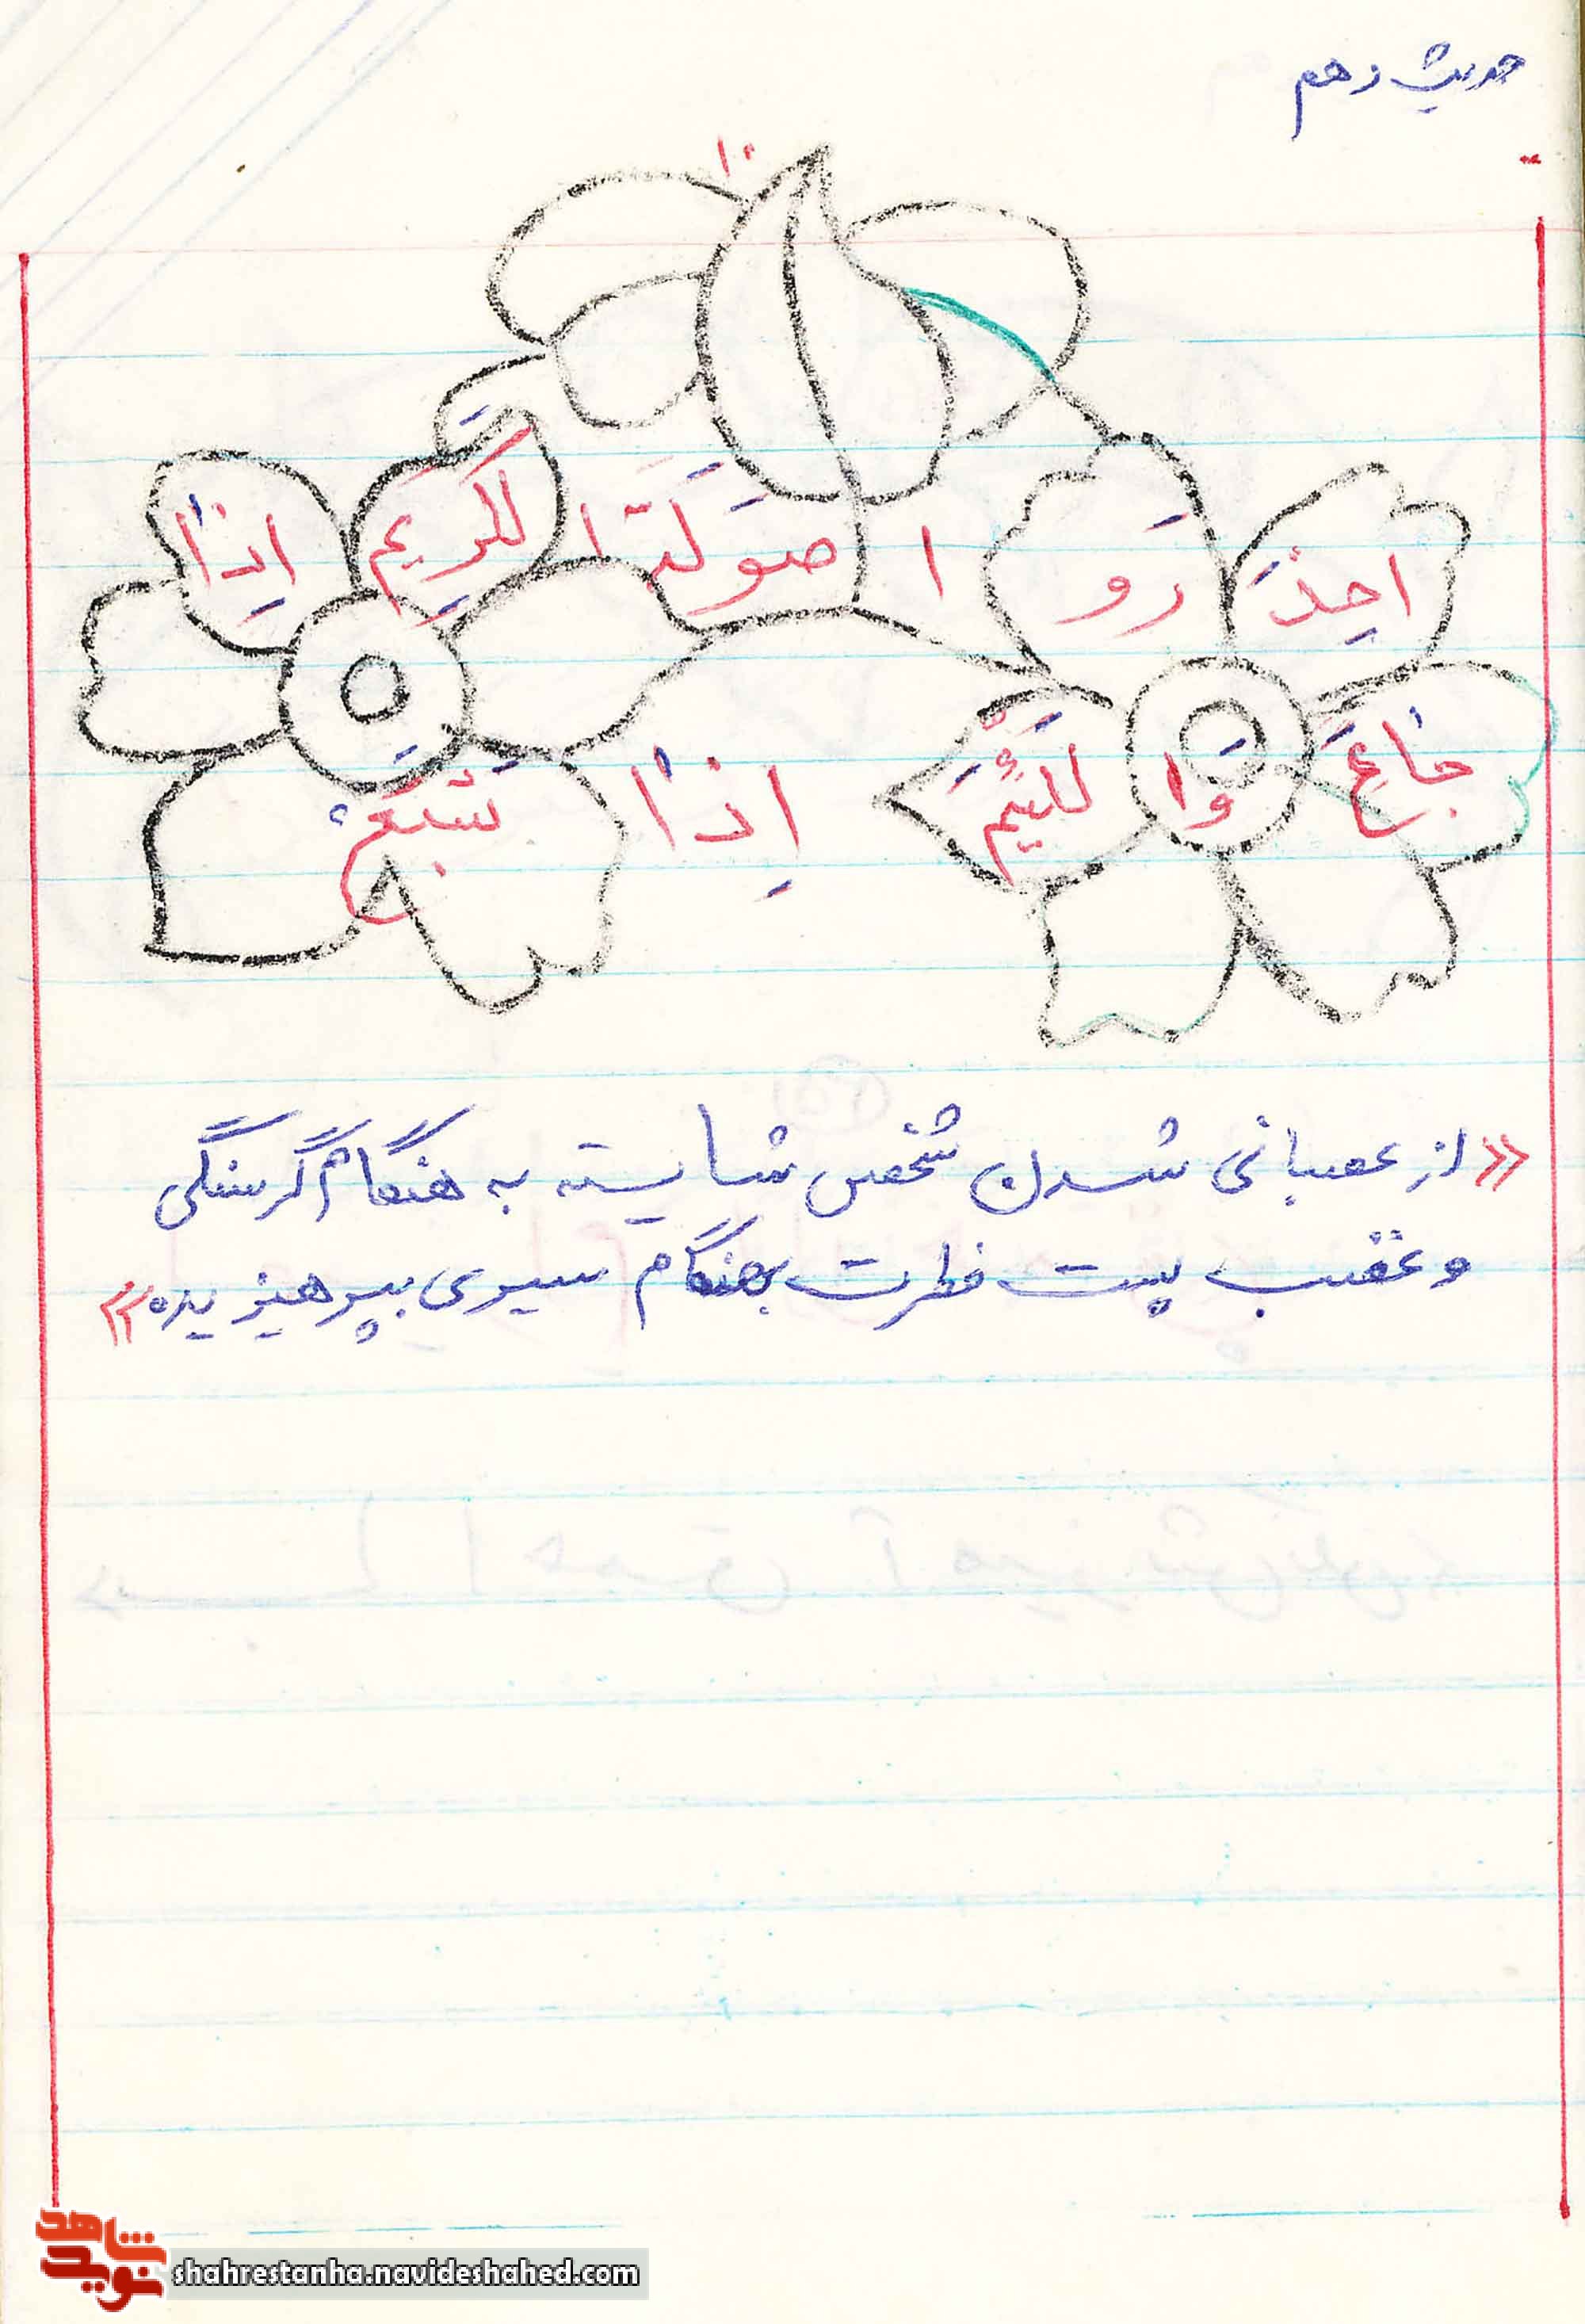 حدیث دهم
۱۰
احِذَ رَو ا صَوَلَتَ ا لکَریِم اِذا
جاعَ وَا لَلئیَّم اِذا شَبَعَ
«از عصبانی شدن شخص شایسته به هنگام گرسنگی
و غضب پست فطرت بهنگام سیری بپرهیزید»
شاهد
نوید
shahrestanha.navideshahed.com